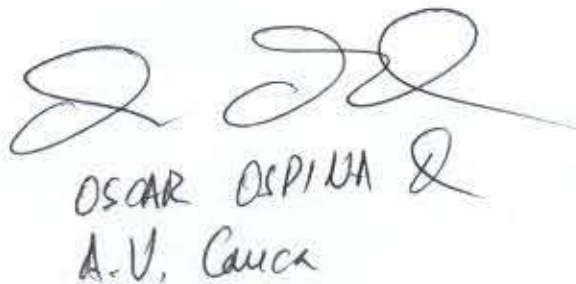 OSCAR OSPINA Q
A.V. Cauca